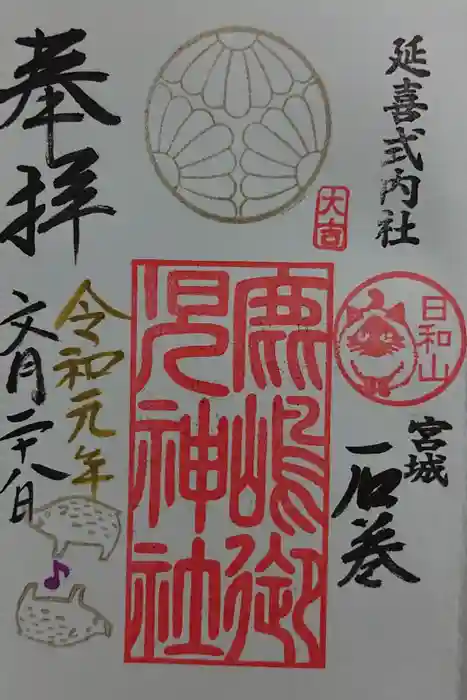 延喜式内社
大吉
日和山
宮城
石巻
鹿嶋御
児神社
奉拝
令和元年
文月二十八日